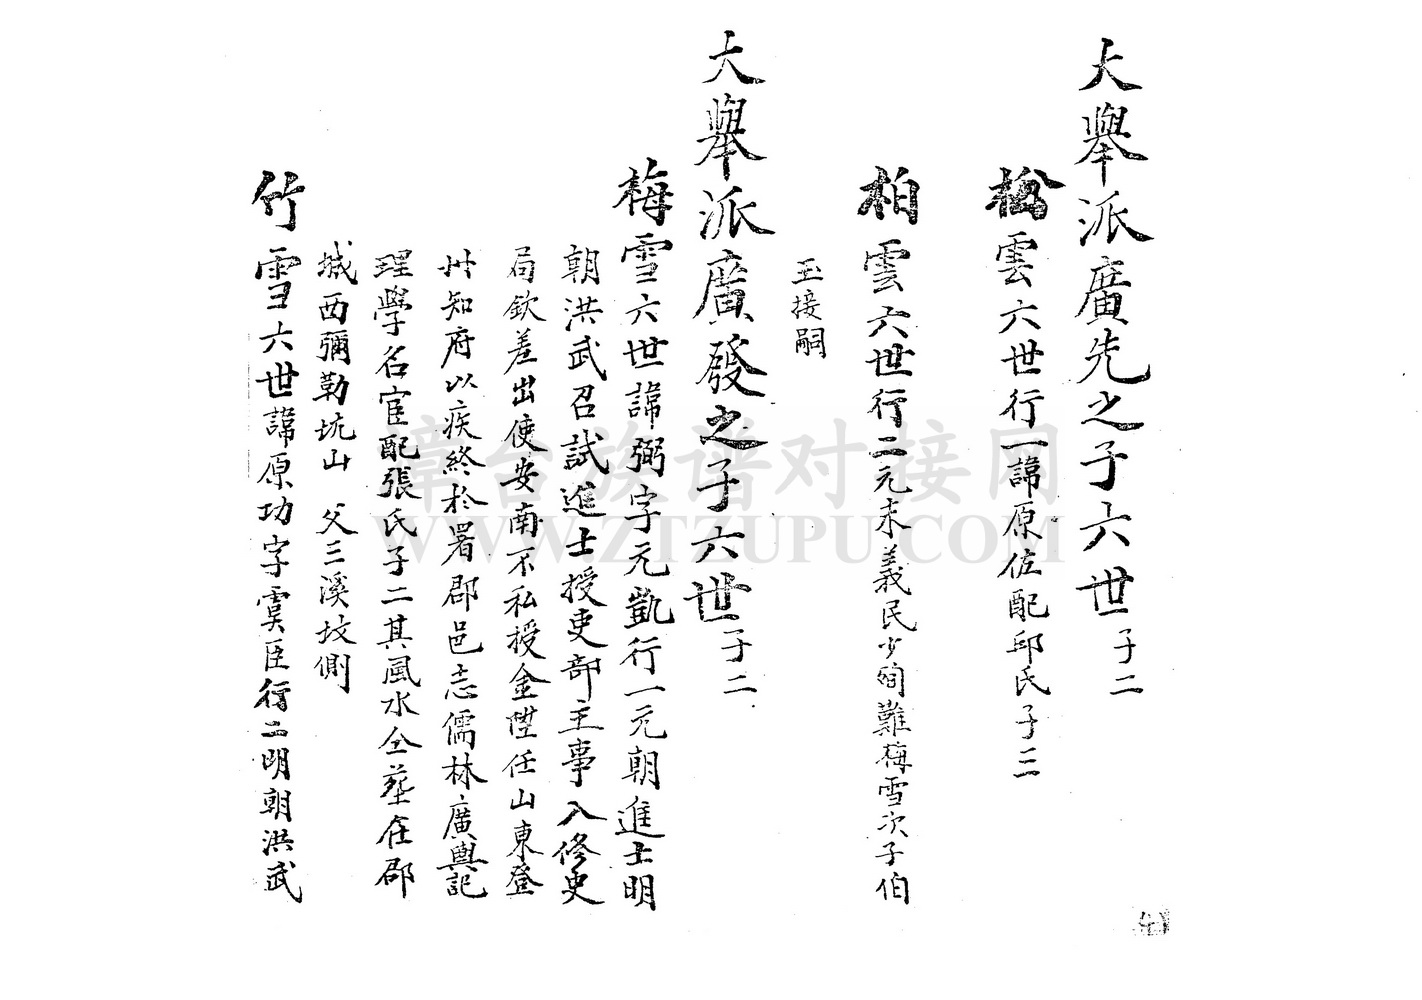 大舉派廣先之子六世子二
松雲六世行一諱原佐配邱氏子三
柏雲六世行二元末義民少殉難梅雪次子伯
玉接嗣
大舉派廣發之子六世子二
梅雪六世諱弼字元凱行一元朝進士明
朝洪武召試進士授吏部主事入修史
局欽差出使安南不私授金陞任山東登
州知府以疾終於署郡邑志儒林廣輿記
理學名宦配張氏子二其風水仝塟在郡
城西彌勒坑山 父三溪坟側
竹雪六世諱原功字虞臣行二明朝洪武
章台族谱对接网
WWW.ZTZUPU.COM